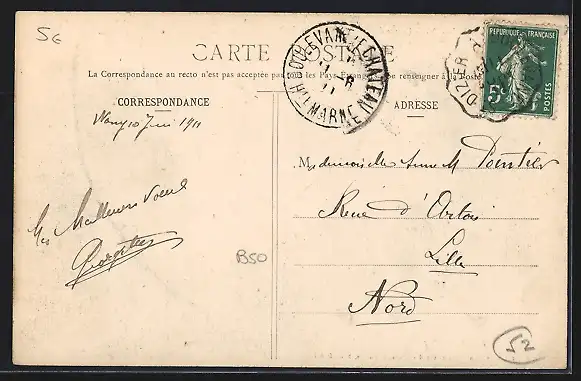 5€
CARTE POSTALE
La Correspondance au recto n'est pas acceptée par tous les Pays Étrangers Se renseigner à la Poste
CORRESPONDANCE
ADRESSE
DOULEVANT-LE-CHATEAU
11 -6
11
Hte MARNE
DIZIER
REPUBLIQUE FRANÇAISE
5c
POSTES
10 Juin 1911
Mes Meilleurs Voeux
B50
Mademoiselle Anne M Pointier
Rue d'Artois
Lille
Nord